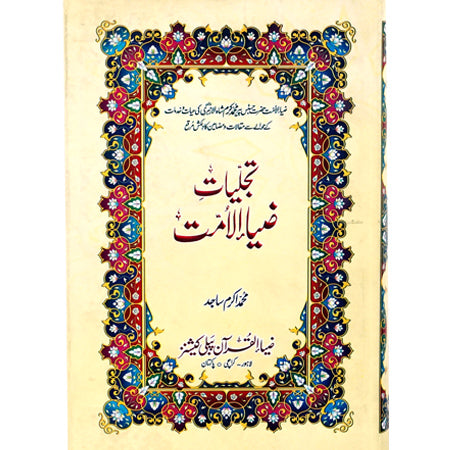 ضیاء الامت حضرت جسٹس پیر محمد کرم شاہ الازہری کی حیات و خدمات
کے حوالے سے مقالات و مضامین کا دلکش مرقع
تجلیاتِ
ضیاء الاُمّت
محمد اکرم ساجد
ضیاء القرآن پبلی کیشنز
لاہور - کراچی ○ پاکستان